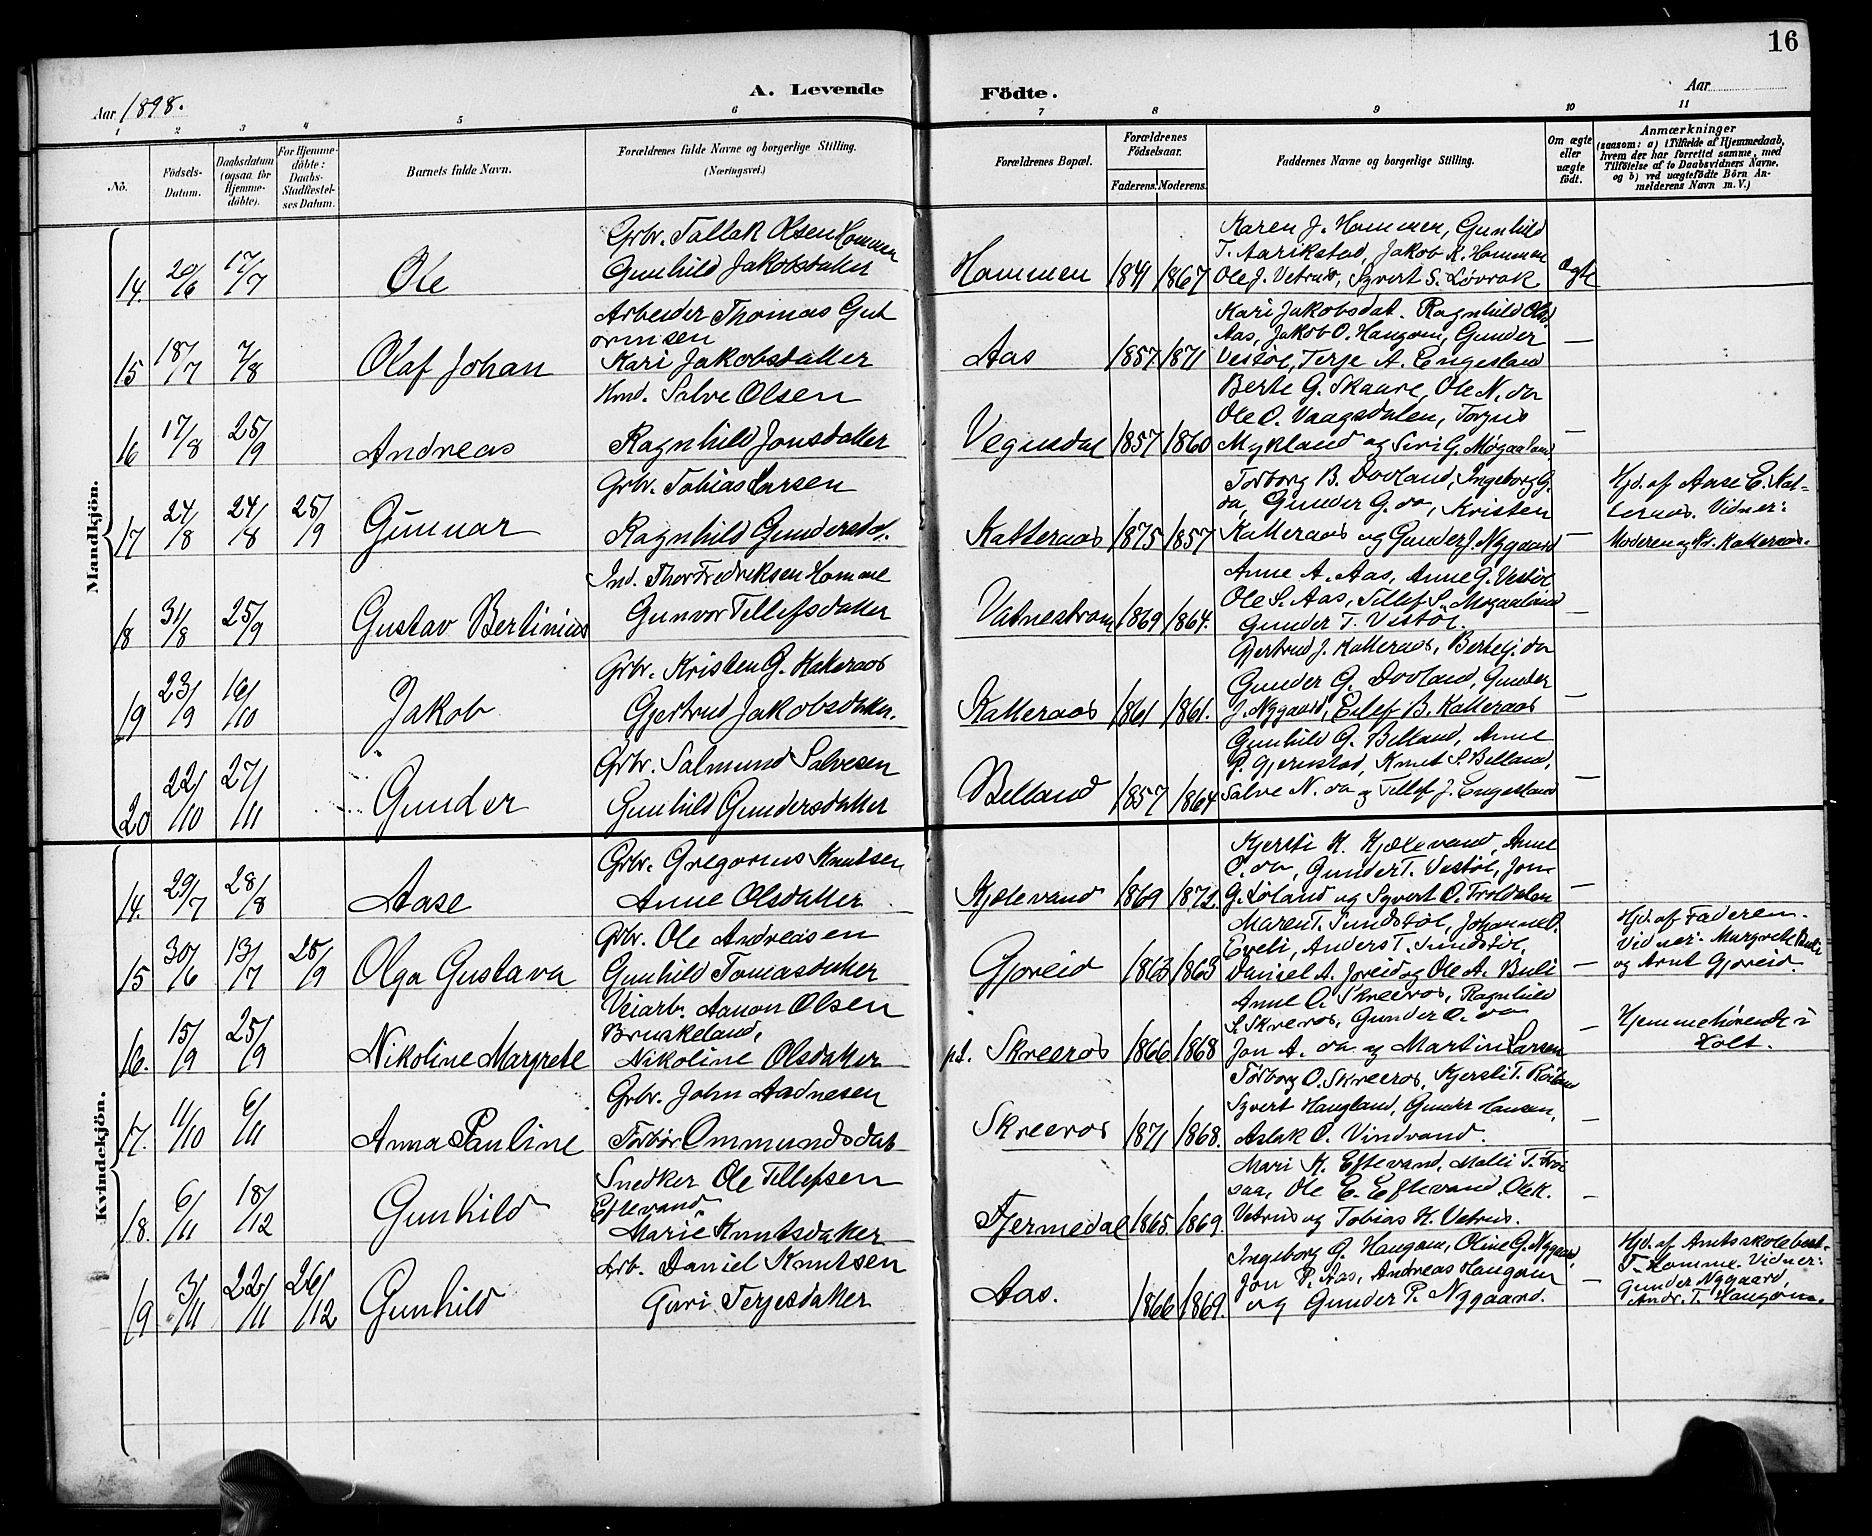 16
Aar 1898.
A. Levende
Födte.
Aar
1 2 3 4 5 6 7 8 9 10 11
No.
Födsels-
Datum.
Daabsdatum
(ogsaa for
Hjemme-
döbte).
For Hjemme-
döbte:
Daabs-
Stadfestel-
ses Datum.
Barnets fulde Navn.
Forældrenes fulde Navne og borgerlige Stilling.
(Næringsvei.)
Forældrenes Bopæl.
Forældrenes
Födselsaar.
Faderens. Moderens.
Faddernes Navne og borgerlige Stilling.
Om ægte
eller
uægte
födt.
Anmærkninger
(saasom: a) i Tilfælde af Hjemmedaab,
hvem der har forrettet samme, med
Tilföielse af to Daabsvidners Navne,
og b) ved uægtefödte Börn An-
melderens Navn m. V.)
Mandkjön.
14. 20/6 17/7 Ole
Grbr. Tallak Olsen Hommen
Gunhild Jakobsdatter
Hommen 1841 1867
Karen J. Hommen, Gunhild
T. Aarikstad, Jakob K. Hommen
Ole J. Vetrus, Syvert S. Løvrak
Ægte
15 18/7 7/8 Olaf Johan
Arbeider Thomas Gut
ormsen
Kari Jakobsdatter
Aas 1857 1871
Kari Jakobsdat. Ragnhild
Aas, Jakob O. Haugom, Gunder
Vestøl, Terje A. Engesland
—
16 17/8 25/9 Andreas
Hmd. Salve Olsen
Ragnhild Jonsdatter
Vegusdal 1857 1860
Berte G. Skaare, Ole N. da
Ole O. Vaagsdalen, Torjus
Mykland og Siri G. Møgaaland
—
17 24/8 24/8 25/9 Gunnar
Grbr. Tobias Larsen
Ragnhild Gundersd.
Katteraas 1875 1857
Torborg B. Dovland, Ingeborg G.
da, Gunder G. da, Kristen
Katteraas og Gunder J. Nygaard
—
Hjd. af Aase E. Kat-
teraas. Vidner:
Moderen og Kr. Katteraas.
18 31/8 25/9 Gustav Bertinius
Ind. Thor Fredriksen Homme
Gunvor Tellefsdatter
Vatnestrøm 1869 1864.
Anne A. Aas, Anne G. Vestøl
Ole S. Aas, Tellef S. Møgaaland
Gunder T. Vestøl.
—
19 23/9 16/10 Jakob
Grbr. Kristen G. Katteraas
Gjertrud Jakobsdatter.
Katteraas 1861 1861.
Gjertrud J. Katteraas, Berte G. da
Gunder G. Dovland, Gunder
J. Nygaard, Eilef B. Katteraas
—
20 22/10 27/11 Gunder
Grbr. Salmund Salvesen
Gunhild Gundersdatter
Belland 1857 1864
Gunhild G. Belland, Anne
P. Gjerustad, Knut S. Belland,
Salve N. da og Tellef J. Engesland
—
Kvindekjön.
14. 29/7 28/8 Aase
Grbr. Gregorius Knutsen
Anne Olsdatter
Kjælevand 1869 1872.
Kjersti K. Kjælevand, Anne
O. da, Gunder T. Vestøl, Jon
G. Løland og Syvert O. Troldalen
—
15 30/6 13/7 25/9 Olga Gustava
Grbr. Ole Andreasen
Gunhild Tomasdatter
Gjoreid 1863 1863
Maren T. Sundstøl, Johanne O.
Eveli, Anders T. Sundstøl,
Daniel A. Joreid og Ole A. Buli
—
Hjd. af Faderen.
Vidner: Margrethe Buli
og Arnt Gjoreid.
16. 15/9 25/9 Nikoline Margrete
Veiarb. Aanon Olsen
Bruskeland,
Nikoline Olsdatter
pt. Skreeros 1866 1868
Anne O. Skreeros, Ragnhild
S. Skreros, Gunder O. da
Jon A. da og Martin Larsen
—
Hjemmehørende i
Holt.
17. 11/10 6/11 Anna Pauline
Grbr. John Aadnesen
Torbor Ommundsdat
Skreeros 1871 1868.
Torborg O. Skreeros, Kjersti T.
Syvert Haugland, Gunder Hansen,
Aslak O. Vindvand.
—
18. 6/11 18/12 Gunhild
Snedker Ole Tellefsen
Eftevand
Marie Knutsdatter
Fjermedal 1865. 1869.
Mari K. Eftevand, Malli T.
Ole E. Eftevand, Ole K.
Vetrus og Tobias K. Vetrus.
—
19 3/11 22/11 26/12 Gunhild
Arb. Daniel Knutsen
Guri Terjesdatter
Aas. 1866 1869.
Ingeborg G. Haugom, Oline G. Nygaard,
Jon P. Aas, Andreas Haugom
og Gunder P. Nygaard.
—
Hjd. af Amtsskolebest.
T. Homme. Vidner:
Gunder Nygaard,
Andr. T. Haugom.